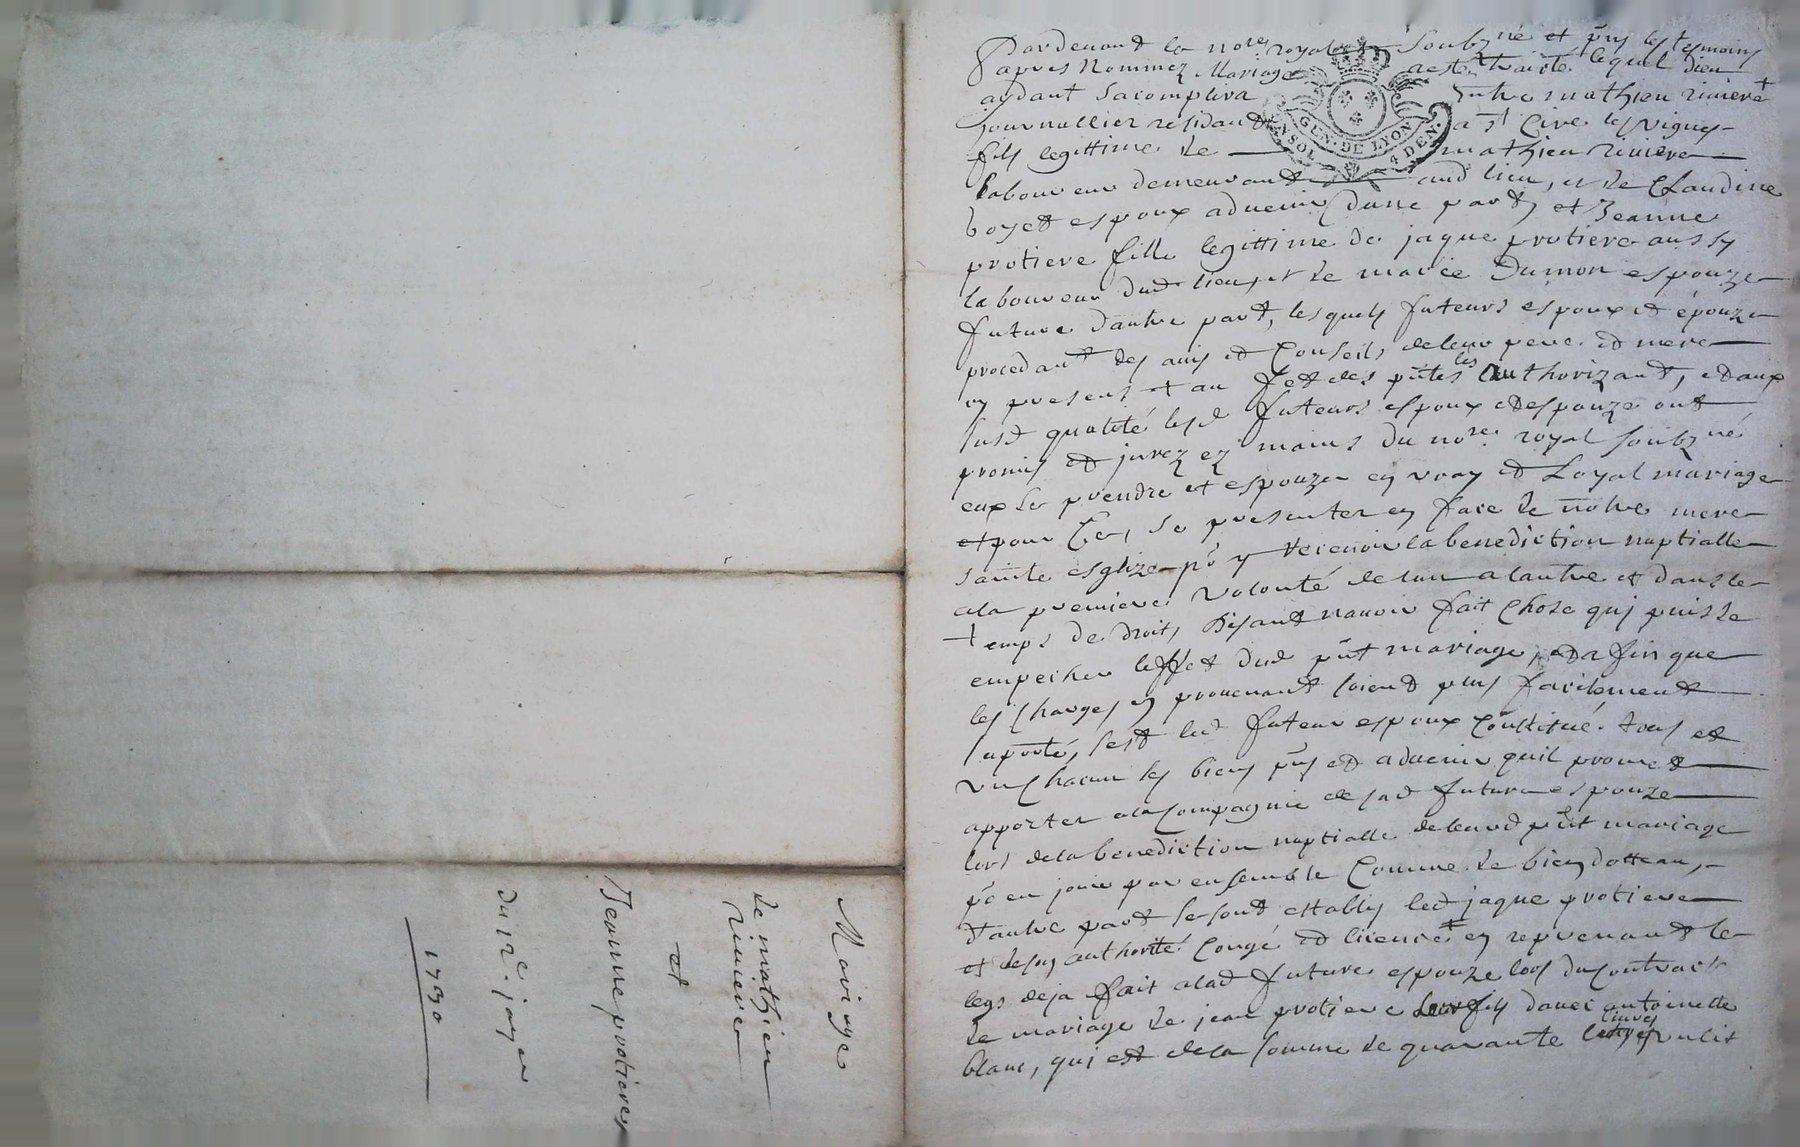 Pardevant le no.re royal soubz né et pnt les tesmoins
apres nommez Mariage a este traicté lequel dieu
aydant sacomplira Entre mathieu riviere
journallier residant a st Cire les vignes
fils legittime de mathieu riviere
laboureur demeurant aud lieu, et de Claudine
boyet espoux advenir dune part, et Jeanne
protiere fille legittime de jaque protiere aussy
laboureur dud lieu, et de marie Dumon espouze
future dautre part, lesquels futeurs espoux et épouze
procedant des avis et Conseils de leur pere et mere
cy presens et au fet des pntes les Authorizant, et aux
susd qualité lesd futeurs espoux et espouze ont
promis et jurez ez mains du no.re royal soubz né
eux se prendre et espouzer en vray et Loyal mariage
et pour Ce, se presenter en face de notre mere
sainte esglize po y recevoir la benediction nuptialle
a la premiere volonté de lun a lautre et dans le
temps de droit, Disant navoir fait Chose qui puisse
empecher leffet dud pnt mariage, et afin que
les Charges en provenant soient plus facilement
suporté, sest led futeur espoux Constitué tous et
un Chacun ses biens pns et advenir quil promet
apporter a la Compagnie de sad future espouze
lors de la benediction nuptialle de leurd pnt mariage
po en jouir par ensemble Comme de bien dotteau,
dautre part se sont establis led jaque protiere
et de son authorité Congé et licence en reprenant le
legs deja fait a lad future espouze lors du Contract
de mariage de jean protiere fils davec antoinette
blanc, qui est de la somme de quarante livres un lit
GEN. DE LYON
SOL 4 DEN.
Mariage
de mathieu
riviere
et
Jeanne protiere
du 12e janer
1730